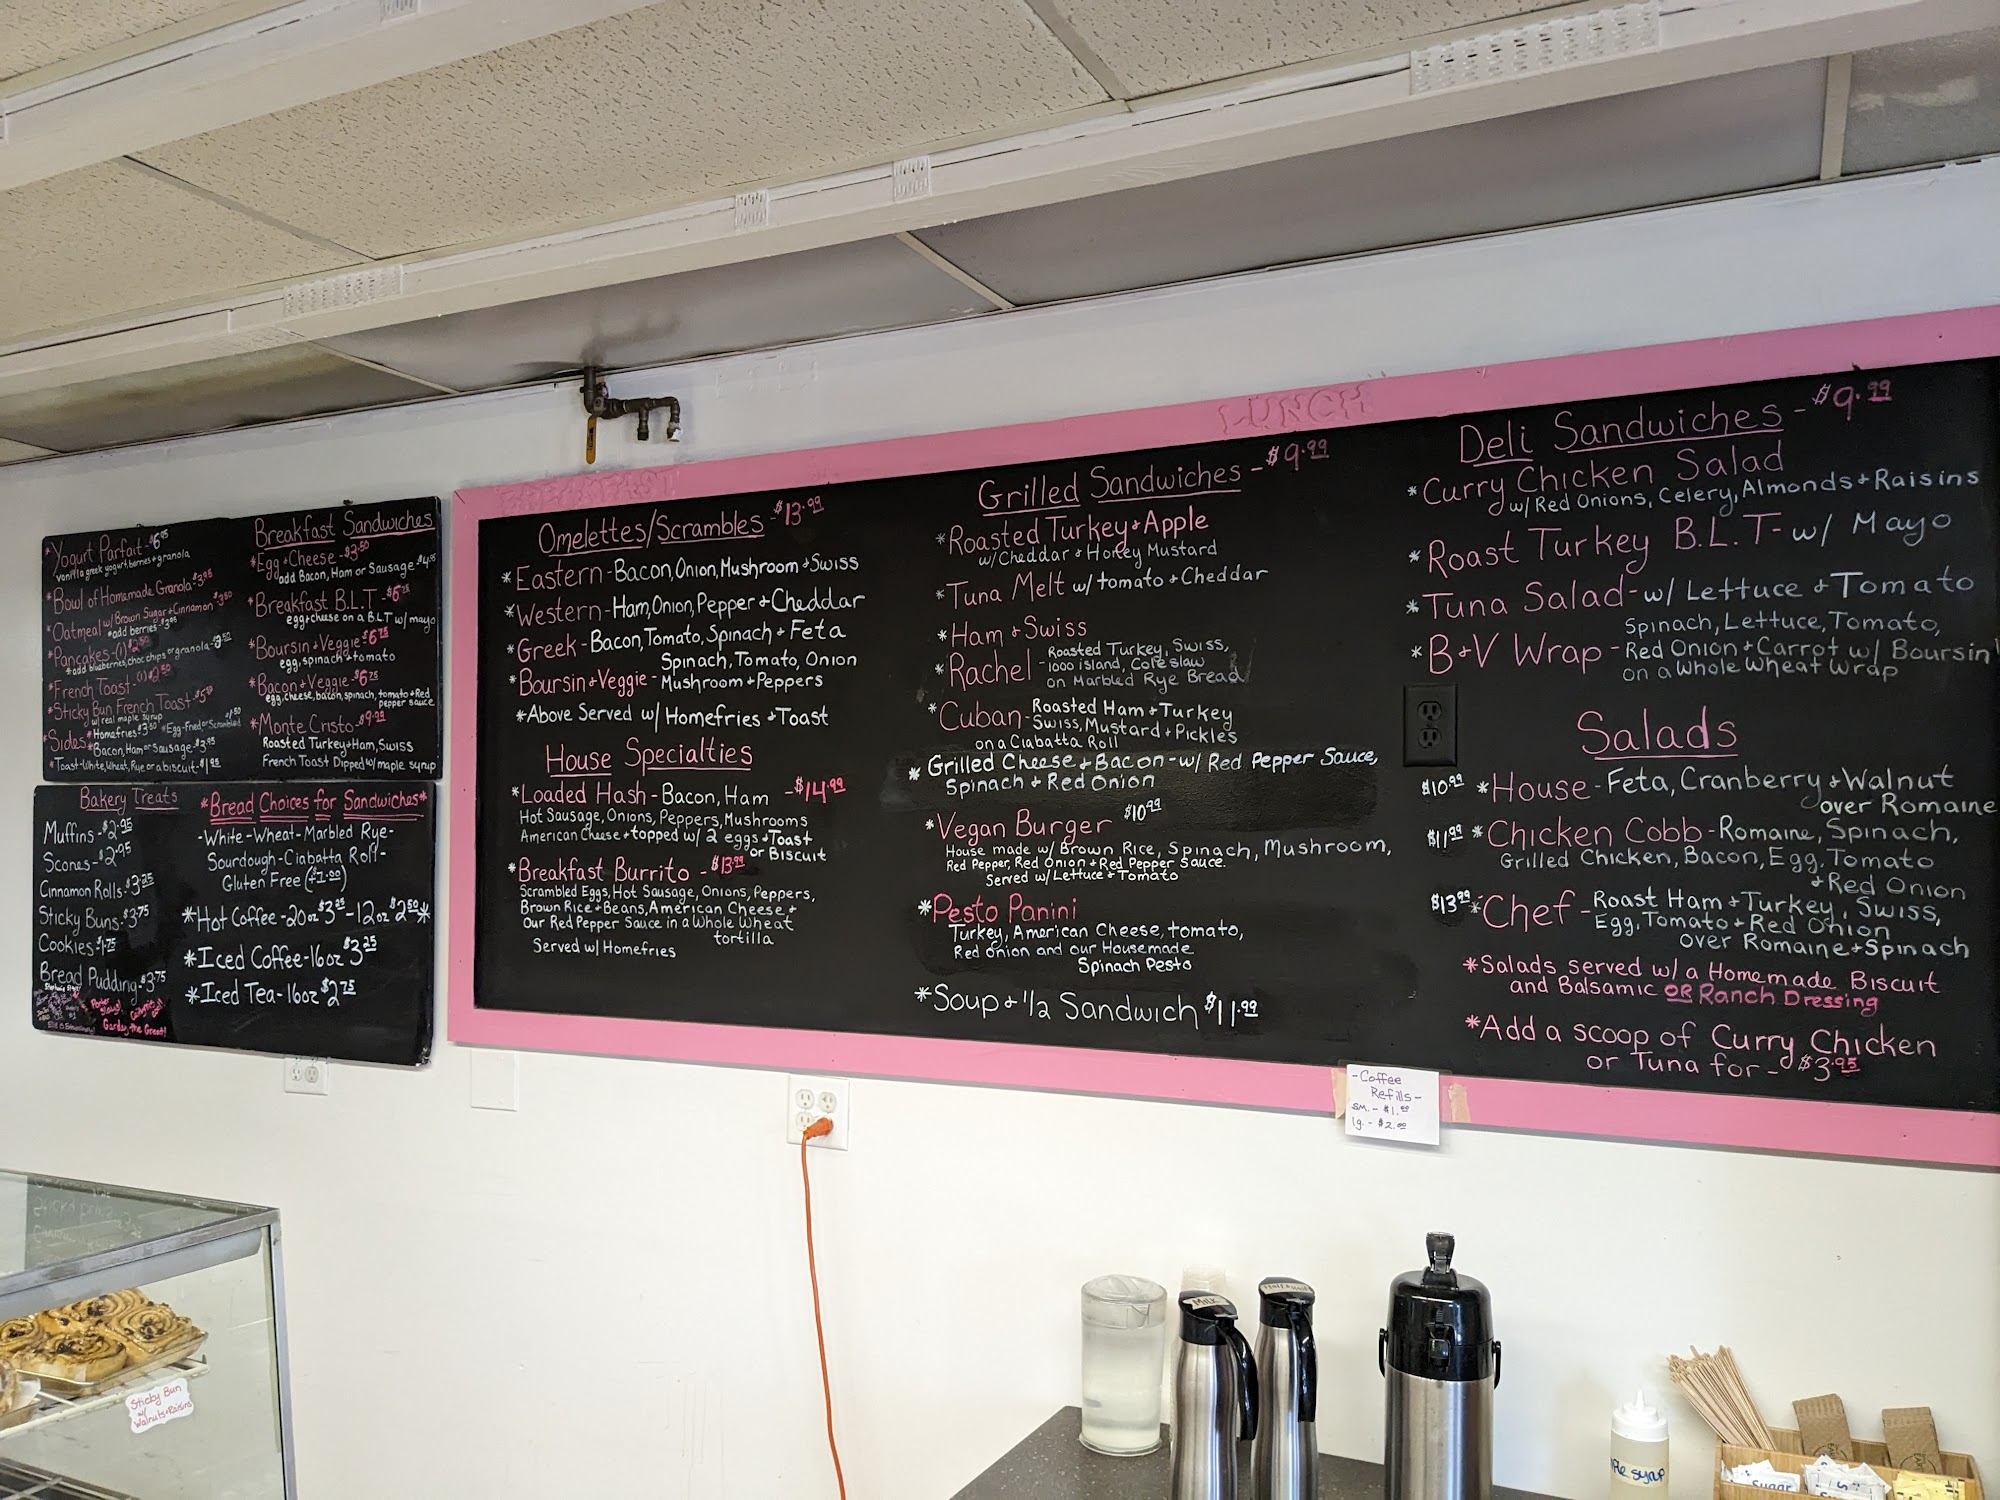 *Yogurt Parfait-$6.95
vanilla greek yogurt, berries + granola
*Bowl of Homemade Granola-$3.95
*Oatmeal w/ Brown Sugar + Cinnamon $3.50
*add berries-$3.95
*Pancakes-(1) $2.50
*add blueberries, choc chips or granola-$3.50
*French Toast-(1) $2.50
*Sticky Bun French Toast-
w/ real maple syrup
*Sides *Homefries $3.50 *Egg-Fried or Scrambled $1.50
*Bacon, Ham or Sausage-$3.95
*Toast-White, Wheat, Rye or a biscuit-$1.95
Breakfast Sandwiches
*Egg + Cheese-$3.50
add Bacon, Ham or Sausage-$4.95
*Breakfast B.L.T-$6.75
egg + cheese on a B.L.T w/ mayo
*Boursin + Veggie-$6.75
egg, spinach + tomato
*Bacon + Veggie-$6.75
egg, cheese, bacon, spinach, tomato + Red
pepper sauce
*Monte Cristo-$9.99
Roasted Turkey + Ham, Swiss
French Toast Dipped w/ maple syrup
Bakery Treats
Muffins-$2.95
Scones-$2.95
Cinnamon Rolls-$3.25
Sticky Buns-$3.75
Cookies-$1.75
Bread Pudding-$3.75
Garby the Great!
*Bread Choices for Sandwiches*
-White-Wheat-Marbled Rye-
Sourdough-Ciabatta Roll-
Gluten Free (+$1.00)
*Hot Coffee-20oz $3.25-12oz $2.50*
*Iced Coffee-16oz $3.25
*Iced Tea-16oz $2.75
BREAKFAST
Omelettes/Scrambles-$13.99
*Eastern-Bacon, Onion, Mushroom + Swiss
*Western-Ham, Onion, Pepper + Cheddar
*Greek-Bacon, Tomato, Spinach + Feta
*Boursin + Veggie-Spinach, Tomato, Onion
Mushroom + Peppers
*Above Served w/ Homefries + Toast
House Specialties
*Loaded Hash-Bacon, Ham -$14.99
Hot Sausage, Onions, Peppers, Mushrooms
American Cheese + topped w/ 2 eggs + Toast
or Biscuit
*Breakfast Burrito -$13.99
Scrambled Eggs, Hot Sausage, Onions, Peppers,
Brown Rice + Beans, American Cheese +
Our Red Pepper Sauce in a Whole Wheat
tortilla
Served w/ Homefries
LUNCH
Grilled Sandwiches-$9.99
*Roasted Turkey + Apple
w/ Cheddar + Honey Mustard
*Tuna Melt w/ tomato + Cheddar
*Ham + Swiss
*Rachel-Roasted Turkey, Swiss,
1000 island, Coleslaw
on Marbled Rye Bread
*Cuban-Roasted Ham + Turkey
Swiss, Mustard + Pickles
on a Ciabatta Roll
*Grilled Cheese + Bacon-w/ Red Pepper Sauce,
Spinach + Red Onion
*Vegan Burger $10.99
House made w/ Brown Rice, Spinach, Mushroom,
Red Pepper, Red Onion + Red Pepper Sauce.
Served w/ Lettuce + Tomato
*Pesto Panini
Turkey, American Cheese, tomato,
Red onion and our Housemade
Spinach Pesto
*Soup + 1/2 Sandwich $11.99
Deli Sandwiches-$9.99
*Curry Chicken Salad
w/ Red Onions, Celery, Almonds + Raisins
*Roast Turkey B.L.T-w/ Mayo
*Tuna Salad-w/ Lettuce + Tomato
*B+V Wrap-Spinach, Lettuce, Tomato,
Red Onion + Carrot w/ Boursin
on a Whole Wheat Wrap
Salads
$10.99 *House-Feta, Cranberry + Walnut
over Romaine
$11.99 *Chicken Cobb-Romaine, Spinach,
Grilled Chicken, Bacon, Egg, Tomato
+ Red Onion
$13.99 *Chef-Roast Ham + Turkey, Swiss,
Egg, Tomato + Red Onion
over Romaine + Spinach
*Salads served w/ a Homemade Biscuit
and Balsamic OR Ranch Dressing
*Add a scoop of Curry Chicken
or Tuna for-$3.95
-Coffee
Refills-
sm.-$1.00
lg.-$2.00
Sticky Bun
w/
Walnuts + Raisins
Milk
Half + Half
syrup
sugar